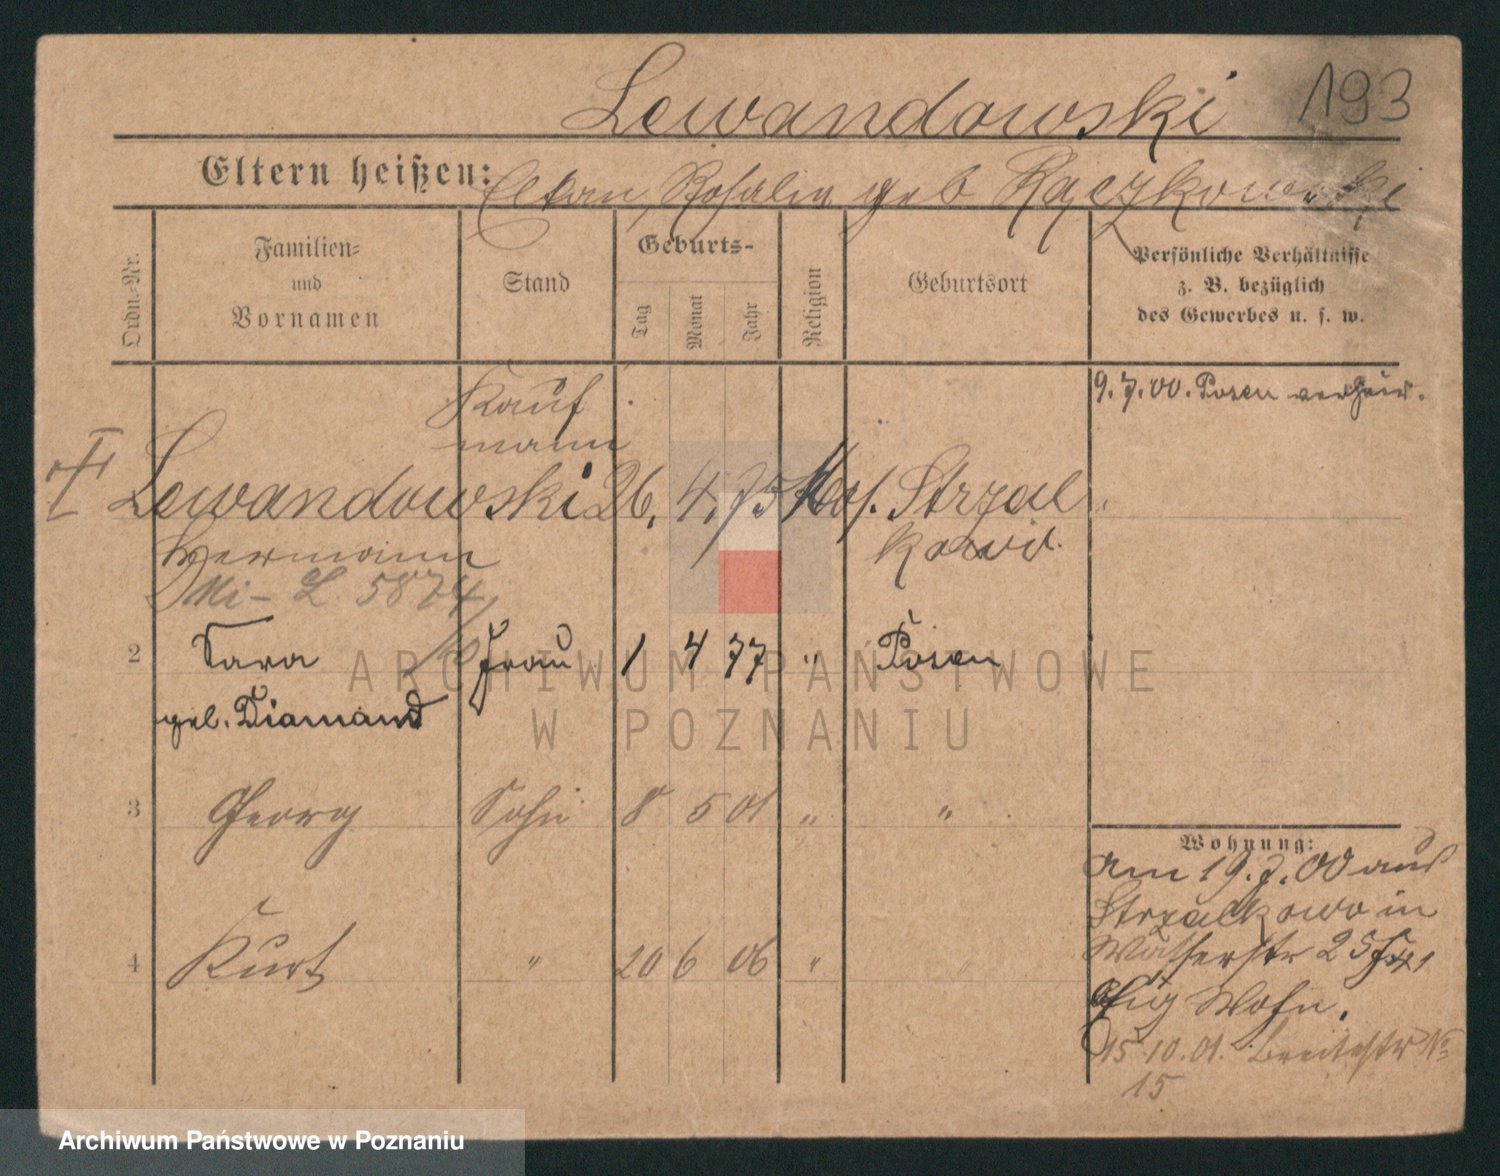 Lewandowski 193
Eltern heißen: Elkan, Rosalia geb Rączkowski
Ordn.-Nr.
Familien- und Vornamen
Stand
Geburts-
Tag
Monat
Jahr
Religion
Geburtsort
Persönliche Verhältnisse
z. B. bezüglich
des Gewerbes u. s. w.
Kauf
mann
9.7.00. Posen verheir.
Lewandowski 26. 4. 75 Mos. Strzal
Hermann kowo.
Mi- L. 5874
2 Sara Frau 1 4 77 " Posen
geb. Diamand
3 Georg Sohn 8 5 01 " "
4 Kurt " 20 6 06 "
Wohnung:
am 19.7.00 aus
Strzalkowo in
Wasserstr 25
Wohn.
15.10.01. Breitestr No
15
ARCHIWUM PAŃSTWOWE
W POZNANIU
Archiwum Państwowe w Poznaniu